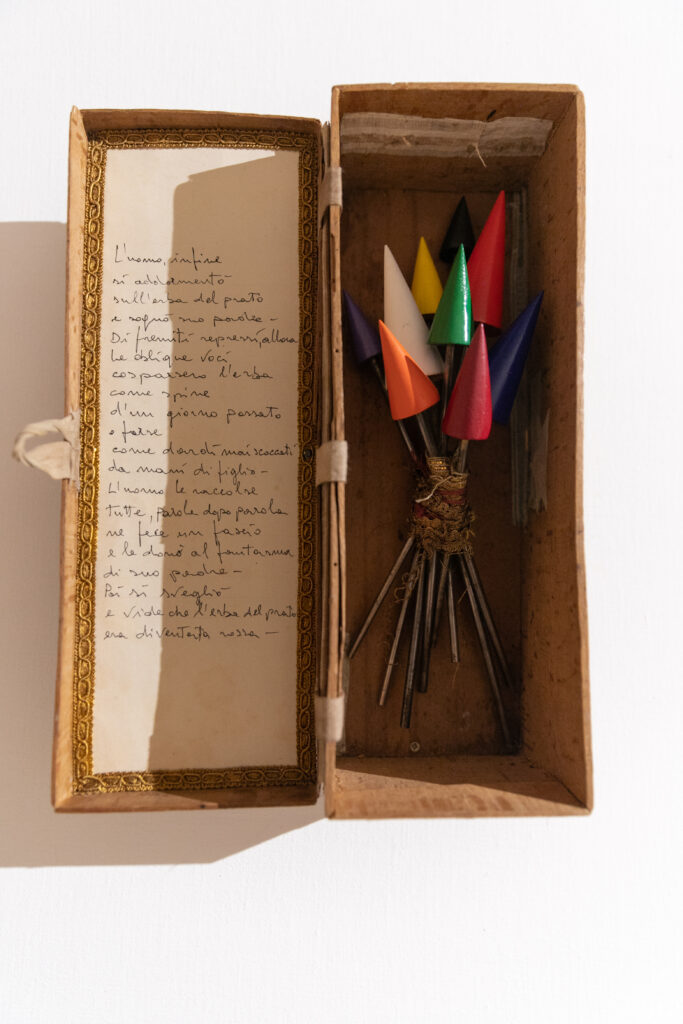 L'uomo, infine
si addormentò
sull'erba del prato
e sognò suo padre —
Di fremiti repressi, allora
le oblique voci
cosparsero l'erba
come spine
d'un giorno passato
o forse
come dardi mai scoccati
da mani di figlio —
L'uomo le raccolse
tutte, parola dopo parola
ne fece un fascio
e le donò al fantasma
di suo padre —
Poi si svegliò
e vide che l'erba del prato
era diventata rossa —